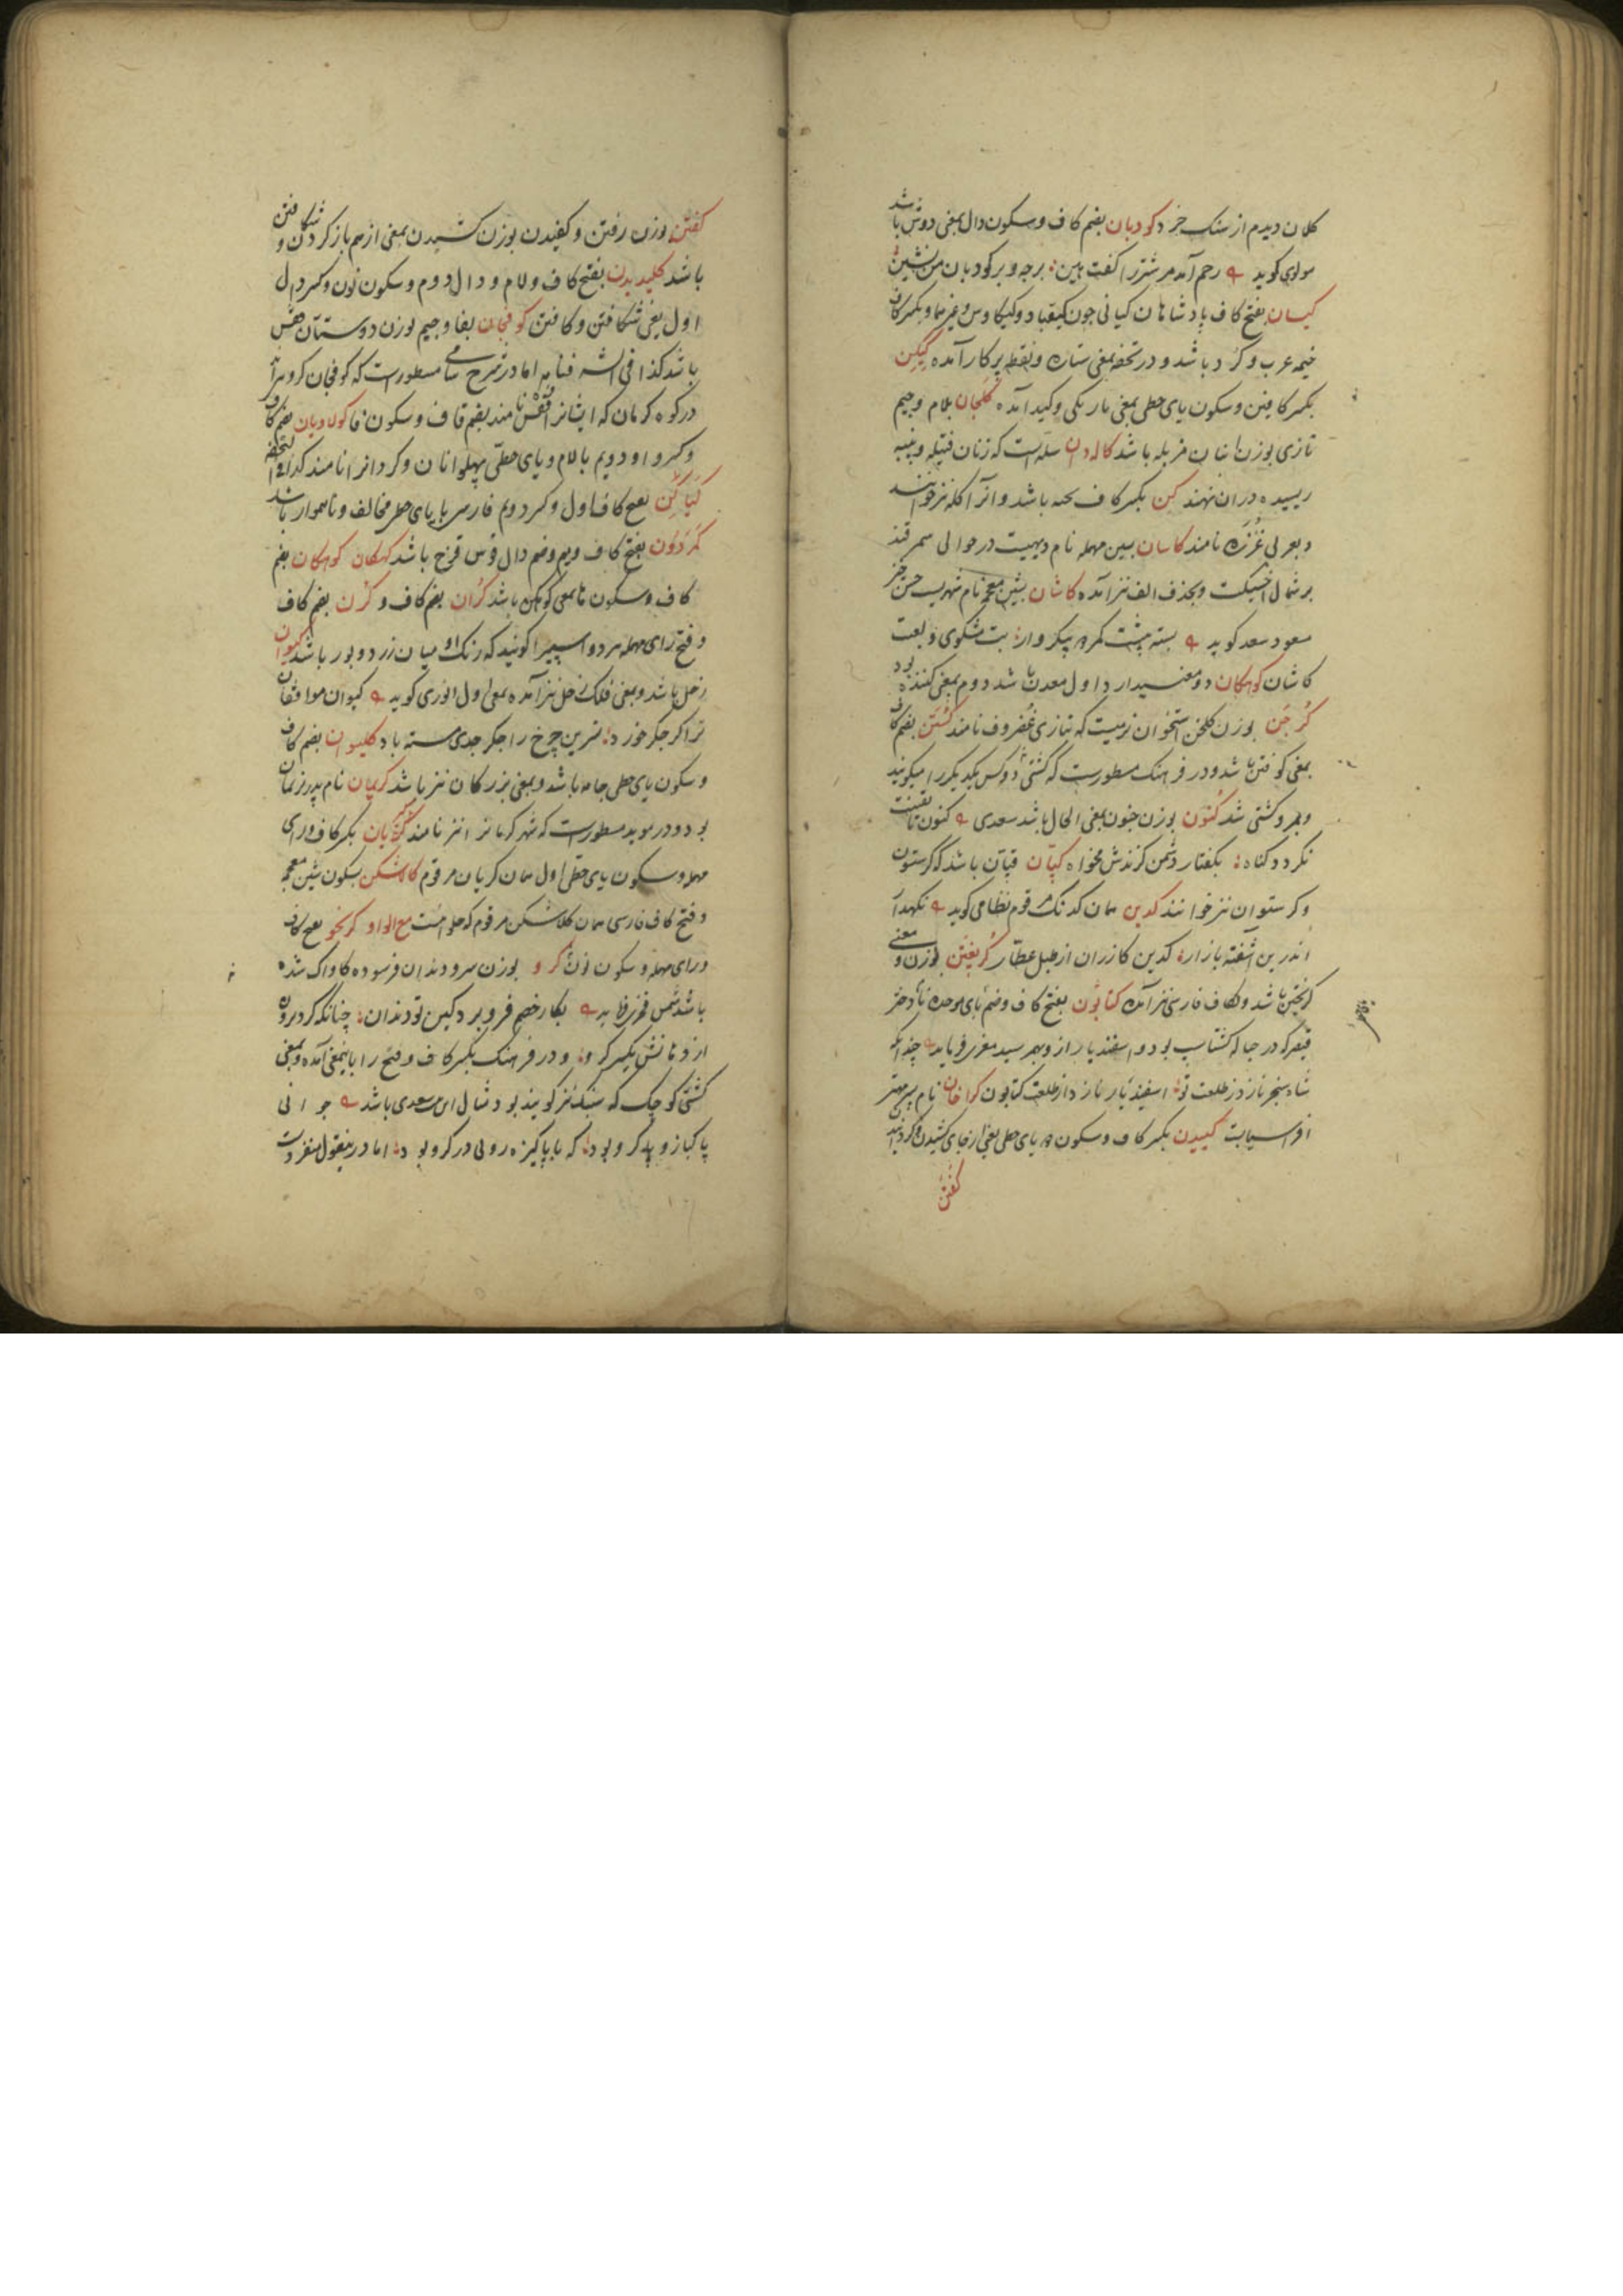 کلان دیدم از سنک جزد کودبان بضم کاف و سکون دال بمعنی دوش باشد
مولوی کوید رحم آمد مر شتر را کفت هین برجه و بر کودبان من نشین
کیسان بفتح کاف پادشاهان کیانی چون کیقباد و کیکاوس و غیرهما و بکسر کاف
خیمه عرب و کرد باشد و در تحفه بمعنی ستاره و نقطه پرکار آمده کیکن
بکسر کافین و سکون یای حطی بمعنی تاریکی و کید آمده کلجان بلام و جیم
تازی بوزن انبان مزبله باشد کاله دان سله است که زنان فتیله و پنبه
ریسیده در ان نهند کن بکسر کاف باشد و آنرا کله نیز خوانند
و بعربی نامند کاسان بسین مهمله نام دیهیست در حوالی سمرقند
بر شمال اخسیکت و بحذف الف نیز آمده کاشان بشین معجمه نام شهریست حسن خیز
مسعود سعد کوید بسته پیشت کمر پیکروار بت مشکوی و لعبت
کاشان کوهکان دو معنی دارد اول معدن باشد دوم بمعنی کننده بود
کرجن بوزن کلخن استخوان نرمیست که بتازی غضروف نامند کشتن بضم کاف
بمعنی کوفتن باشد و در فرهنک مسطورست که کشتی دو کس یکدیکر را میکویند
و بهر و کشتی شد کنون بوزن جنون بمعنی الحال باشد سعدی کنون
نکردد کناه بکفتار دشمن کزندش مخواه کپان قپان باشد که کرستون
و کرستوان نیز خوانند کدین همان کدنک مرقوم نظامی کوید نکهدار
اندرین آشفته بازار کدین کازران از طبل عطار کریغتن بوزن و معنی
کریختن باشد و بکاف فارسی نیز آمده کتابون بفتح کاف و ضم بای موحده نام دختر
قیصر که در حباله کشتاسپ بود و اسفندیار از و بهمرسید مغزی فرماید چندانکه
شاه سنجر نازد ز طلعت تو اسفندیار نازد از طلعت کتابون کراخان نام پسر مهتر
افراسیابست کبیدن بکسر کاف و سکون یای حطی یعنی از جای کشیدن و کردانیدن
کفتن
کفتن بوزن رفتن و کفیدن بوزن کشیدن بمعنی از هم باز کردن و شکافتن
باشد کلیدیدن بفتح کاف و لام و دال دوم و سکون نون و کسر دال
اول یعنی شکافتن و کافتن کوفجان بفا و جیم بوزن دوستان قفس
باشد کذا فی الشرفنامه اما در شرح سامی مسطورست که کوفجان کروهی اند
در کوه کرمان که ایشانرا قفس نامند بضم قاف و سکون فا کولادیان بضم کاف
و کسر واو دویم با لام و یای حطی پهلوانان و کردانرا نامند کذا فی التحفه
کیاکن بفتح کاف اول و کسر دویم فارسی با یای حطی مخالف و ناهموار باشد
کمردون بفتح کاف و میم و ضم دال قوس قزح باشد کهکان کوهکان بضم
کاف و سکون ها بمعنی کوهکن باشد کران بضم کاف و کرن بضم کاف
و فتح رای مهمله هر دو اسپی را کویند که رنک او میان زرد و بور باشد کیوان
زحل باشد و بمعنی فلک زحل نیز آمده بمعنی اول انوری کوید کیوان موافقان
ترا کر جکر خورد نسرین چرخ را جکر جدی مسته باد کلیوان بضم کاف
و سکون یای حطی جامه باشد و بمعنی بزرکان نیز باشد کریمان نام پدر نریمان
بود و در موید مسطورست که شهر کرمانرا نیز نامند کریان بکسر کاف و رای
مهمله و سکون یای حطی اول همان کریان مرقوم کلاشکن بسکون شین معجمه
و فتح کاف فارسی همان کلاشکن مرقوم که حلواست مع الواو کرنجو بفتح کاف
و رای مهمله و سکون نون کرو بوزن سرو دندان فرسوده کاواک شده
باشد شمس فخری فرماید بکار خصم فرو برد کین تو دندان چنانکه کرد برون
از دهانش یکسر کرو و در فرهنک بکسر کاف و فتح را باین معنی آمده و بمعنی
کشتی کوچک که سنبک نیز کویند بود مثال این سعدی باشد جوانی
پاکباز و پاکرو بود که با پاکیزه رویی در کرو بود اما در این قول منفردست